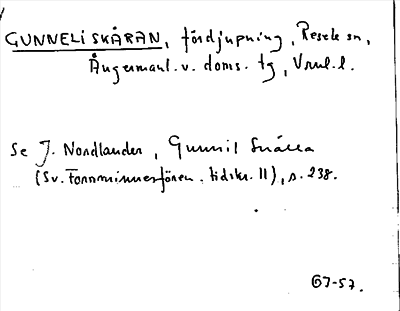 GUNNELISKÅRAN, fördjupning, Resele sn,
Ångermanl. v. doms. tg, Vnrl. l.
Se J. Nordlander, Gunnil Snälla
(Sv. Fornminnesfören. tidskr. 11), s. 238.
67-57.